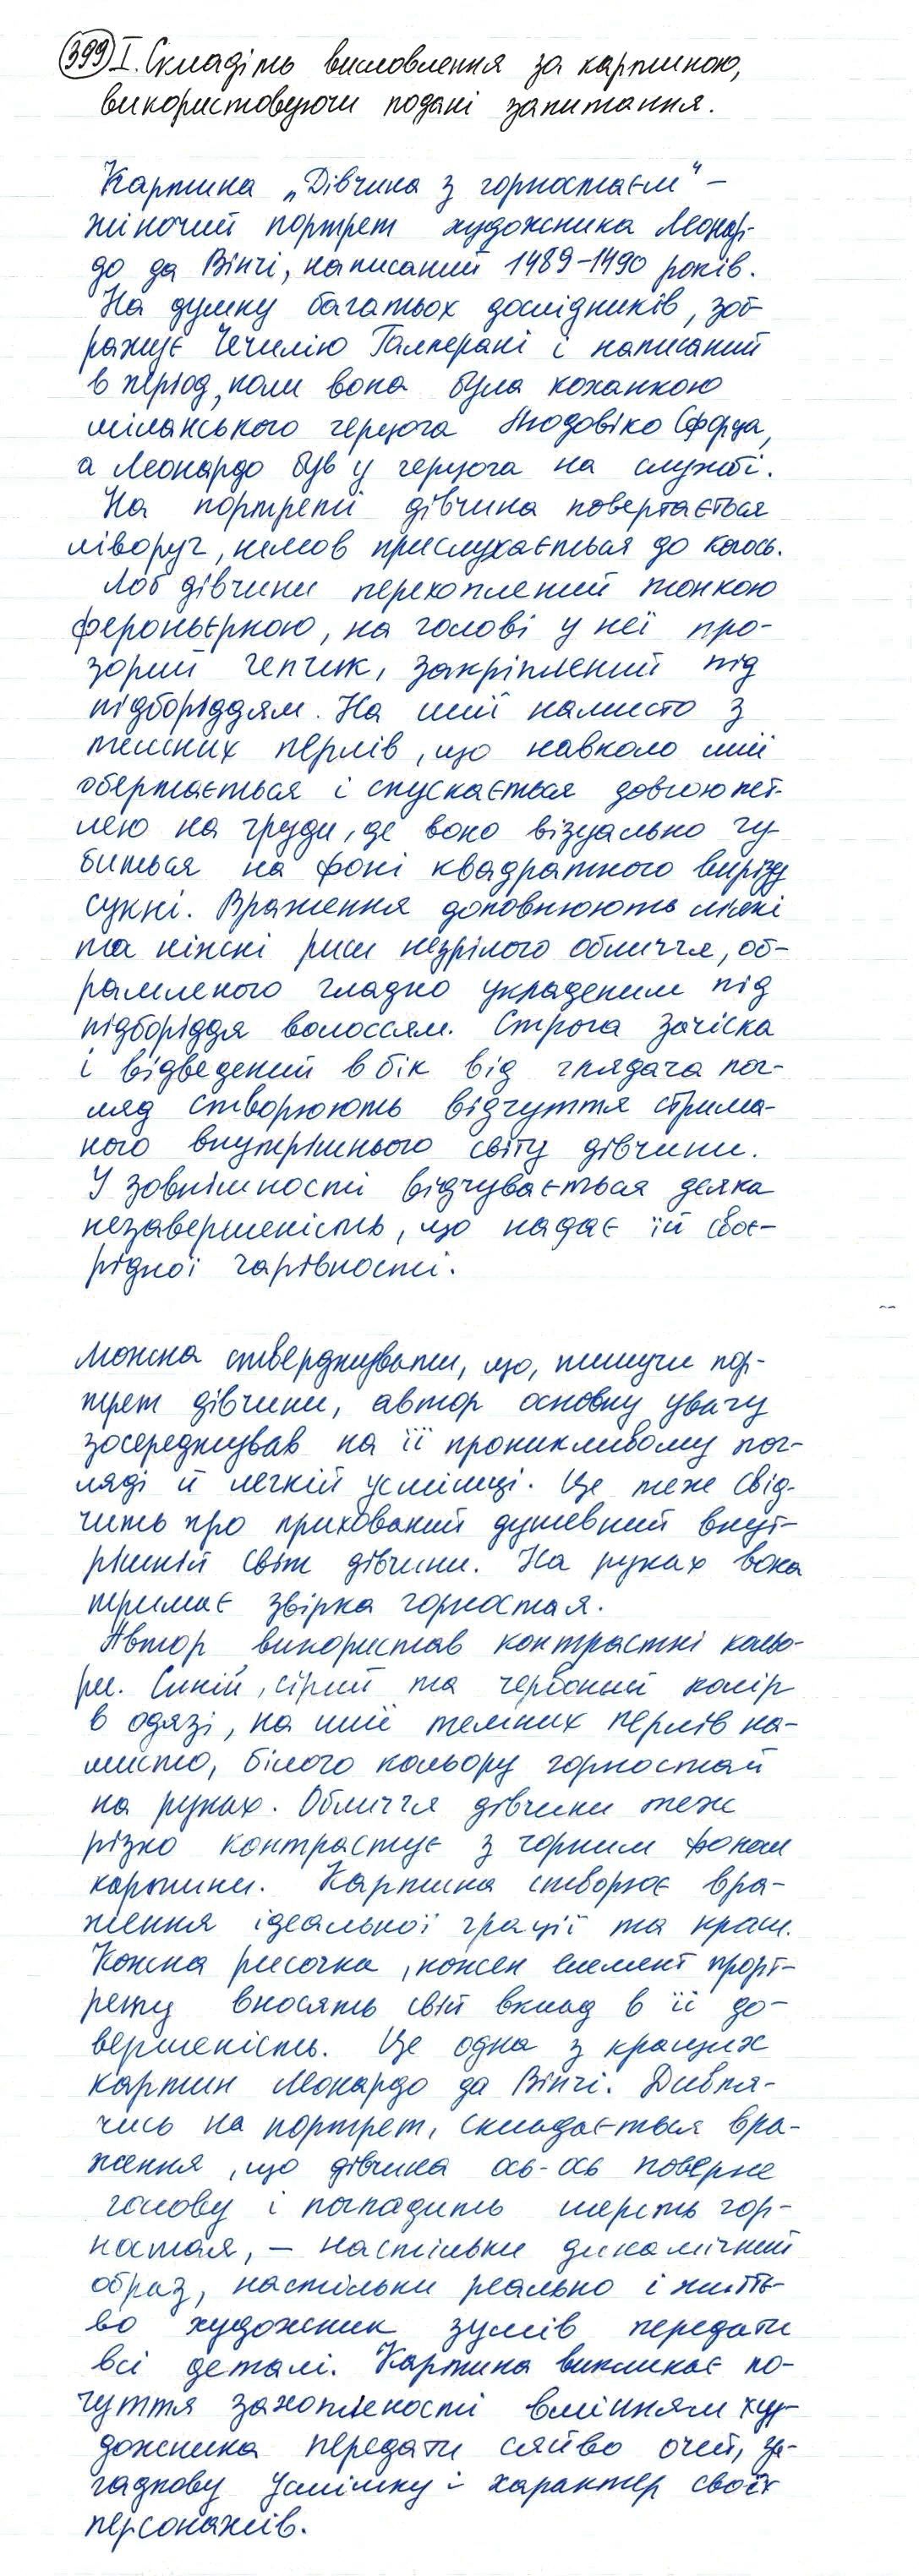 399 I. Складіть висловлення за картиною,
використовуючи подані запитання.
Картина „Дівчина з горностаєм" –
жіночий портрет художника Леонар-
до да Вінчі, написаний 1489-1490 років.
На думку багатьох дослідників, зоб-
ражує Чечилію Галлерані і написаний
в період, коли вона була коханкою
міланського герцога Людовіко Сфорца,
а Леонардо був у герцога на службі.
На портреті дівчина повертається
ліворуч, немов прислухається до когось.
Лоб дівчини перехоплений тонкою
фероньєркою, на голові у неї про-
зорий чепчик, закріплений під
підборіддям. На шиї намисто з
темних перлів, що навколо шиї
обертається і спускається довгою пет-
лею на груди, де воно візуально гу-
биться на фоні квадратного вирізу
сукні. Враження доповнюють м'які
та ніжні риси незрілого обличчя, об-
рамленого гладко укладеним під
підборіддя волоссям. Строга зачіска
і відведений в бік від глядача пог-
ляд створюють відчуття стрима-
ного внутрішнього світу дівчини.
У зовнішності відчувається деяка
незавершеність, що надає їй своє-
рідної чарівності.
Можна стверджувати, що, пишучи пор-
трет дівчини, автор основну увагу
зосереджував на її проникливому пог-
ляді й легкій усмішці. Це теж свід-
чить про прихований душевний внут-
рішній світ дівчини. На руках вона
тримає звірка горностая.
Автор використав контрастні кольо-
ри. Синій, сірий та червоний колір
в одязі, на шиї темних перлів на-
мисто, білого кольору горностай
на руках. Обличчя дівчини теж
різко контрастує з чорним фоном
картини. Картина створює вра-
ження ідеальної грації та краси.
Кожна рисочка, кожен елемент порт-
рету вносять свій вклад в її до-
вершеність. Це одна з кращих
картин Леонардо да Вінчі. Дивля-
чись на портрет, складається вра-
ження, що дівчина ось-ось поверне
голову і погладить шерсть гор-
ностая, – настільки динамічний
образ, настільки реально і життє-
во художник зумів передати
всі деталі. Картина викликає по-
чуття захопленості вмінням худ-
дожника передати сяйво очей, за-
гадкову усмішку і характер своїх
персонажів.